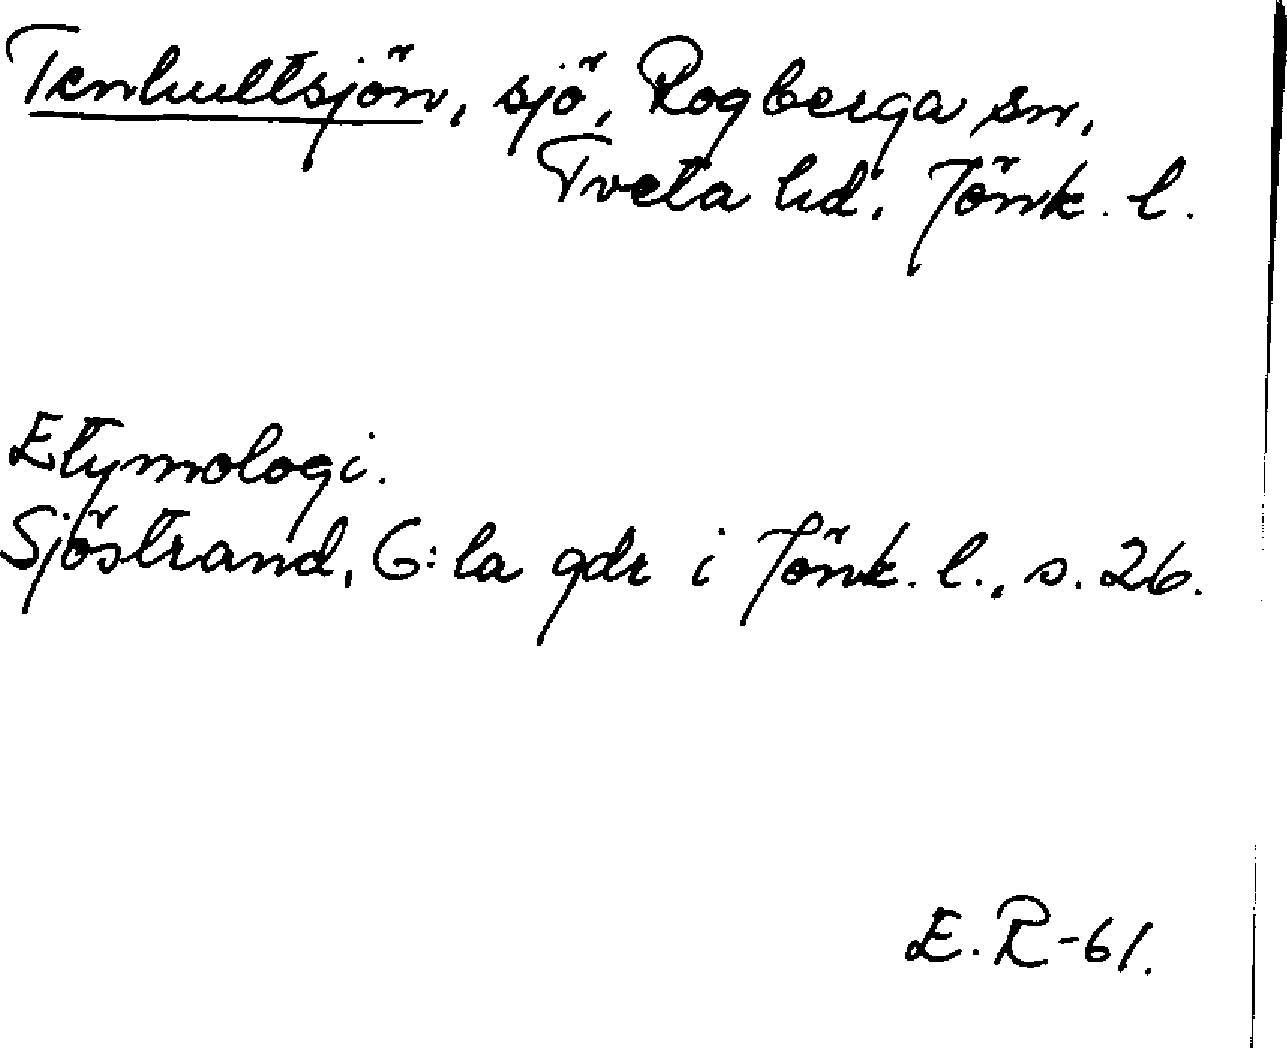 Tenhultsjön, sjö, Rogberga sn,
Tveta hd, Jönk. l.
Etymologi.
Sjöstrand, G:la gdr i Jönk. l., s. 26.
E. R-61.